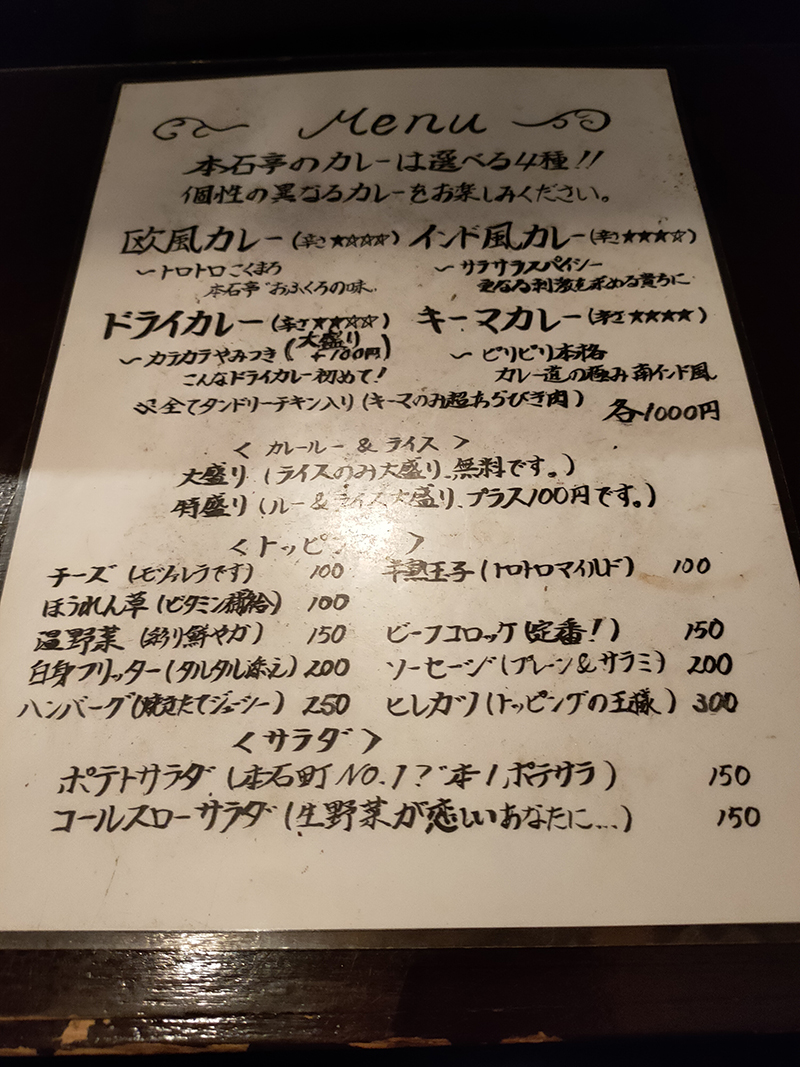 Menu
本石亭のカレーは選べる4種!!
個性の異なるカレーをお楽しみください。
欧風カレー(辛さ★☆☆☆) インド風カレー(辛さ★★★☆)
～トロトロこくまろ
本石亭"おふくろの味
～サラサラスパイシー
更なる刺激を求める貴方に
ドライカレー(辛さ★★☆☆) キーマカレー(辛さ★★★★)
～カラカラやみつき(大盛り+100円)
こんなドライカレー初めて!
～ピリピリ本格
カレー道の極み南インド風
※全てタンドリーチキン入り(キーマのみ超あらびき肉) 各1000円
<カレールー&ライス>
大盛り(ライスのみ大盛り、無料です。)
特盛り(ルー&ライス大盛り、プラス100円です。)
<トッピング>
チーズ(モツァレラです) 100 半熟玉子(トロトロマイルド) 100
ほうれん草(ビタミン補給) 100
温野菜(彩り鮮やか) 150 ビーフコロッケ(定番!) 150
白身フリッター(タルタル添え) 200 ソーセージ(プレーン&サラミ) 200
ハンバーグ(焼きたてジューシー) 250 ヒレカツ(トッピングの王様) 300
<サラダ>
ポテトサラダ(本石町NO.1?"本-1"ポテサラ) 150
コールスローサラダ(生野菜が恋しいあなたに...) 150